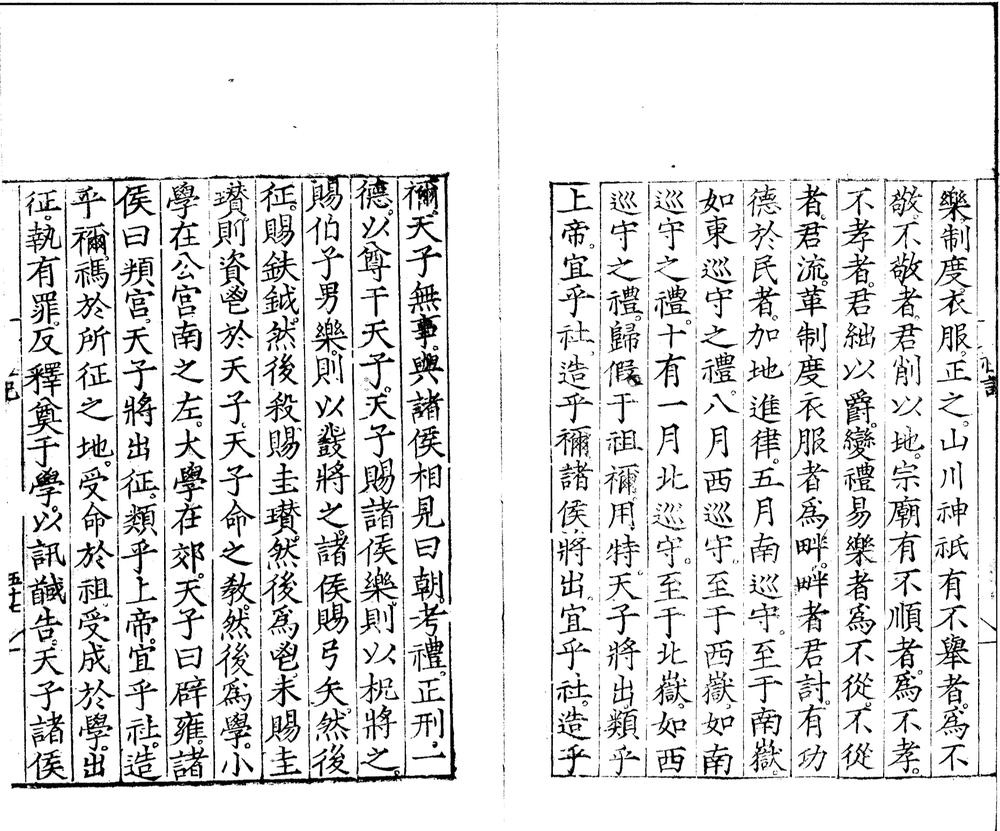 樂制度衣服。正之。山川神祇有不舉者。爲不
敬。不敬者。君削以地。宗廟有不順者。爲不孝。
不孝者。君絀以爵。變禮易樂者。爲不從。不從
者。君流。革制度衣服者。爲畔。畔者。君討。有功
德於民者。加地進律。五月南巡守。至于南嶽。
如東巡守之禮。八月西巡守。至于西嶽。如南
巡守之禮。十有一月北巡守。至于北嶽。如西
巡守之禮。歸假于祖禰。用特。天子將出。類乎
上帝。宜乎社。造乎禰。諸侯將出。宜乎社。造乎
禰。天子無事。與諸侯相見曰朝。考禮。正刑。一
德。以尊于天子。天子賜諸侯樂。則以柷將之。
賜伯子男樂。則以鼗將之。諸侯賜弓矢。然後
征。賜鈇鉞。然後殺。賜圭瓚。然後爲鬯。未賜圭
瓚。則資鬯於天子。天子命之敎。然後爲學。小
學在公宮南之左。大學在郊。天子曰辟雍。諸
侯曰頖宮。天子將出征。類乎上帝。宜乎社。造
乎禰。禡於所征之地。受命於祖。受成於學。出
征。執有罪。反釋奠于學。以訊馘告。天子諸侯
五十七